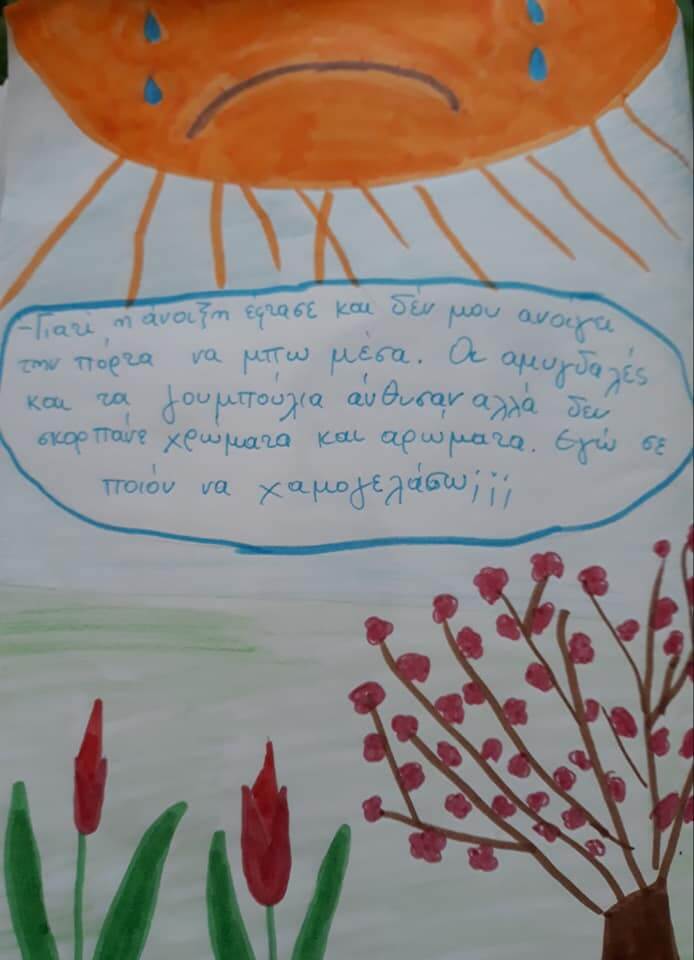 -Γιατί η άνοιξη έφτασε και δέν μου ανοίγει
την πόρτα να μπω μέσα. Οι αμυγδαλές
και τα ζουμπούλια άνθισαν αλλά δεν
σκορπάνε χρώματα και αρώματα. Εγώ σε
ποιόν να χαμογελάσω¡¡¡